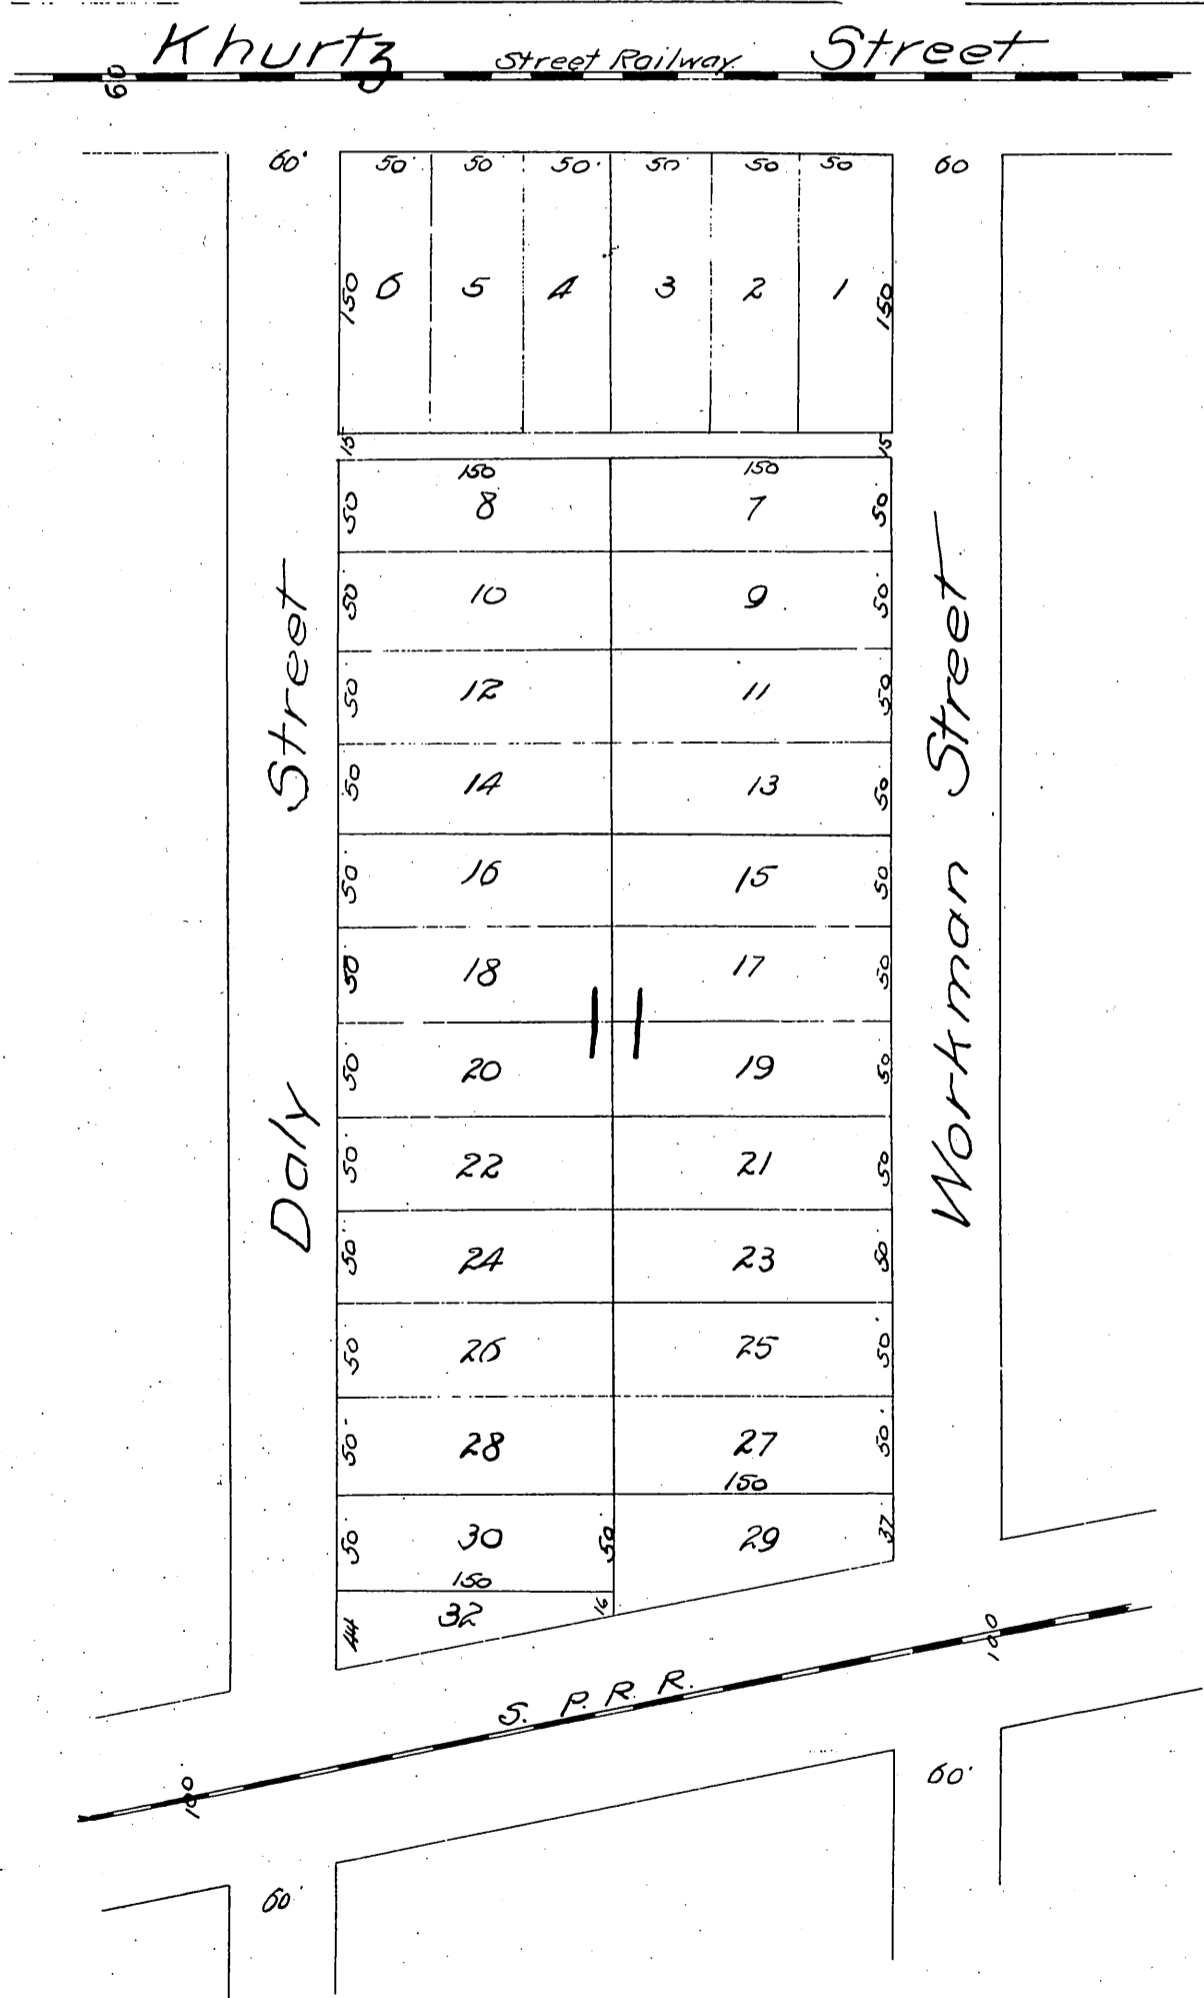 Khurtz Street Railway. Street
60
60' 50' 50 50' 50 50 50 60
150 6 5 4 3 2 1 150
15 15
150 150
50 8 7 50
50 10 9 50
50 12 11 50
50 14 13 50
50 16 15 50
50 18 17 50
11
50 20 19 50
50 22 21 50
50 24 23 50
50 26 25 50
50 28 27 50
150
50 30 50 29 37
150
44 32 16
Daly Street
Workman Street
S. P. R. R.
100
100
60'
60'